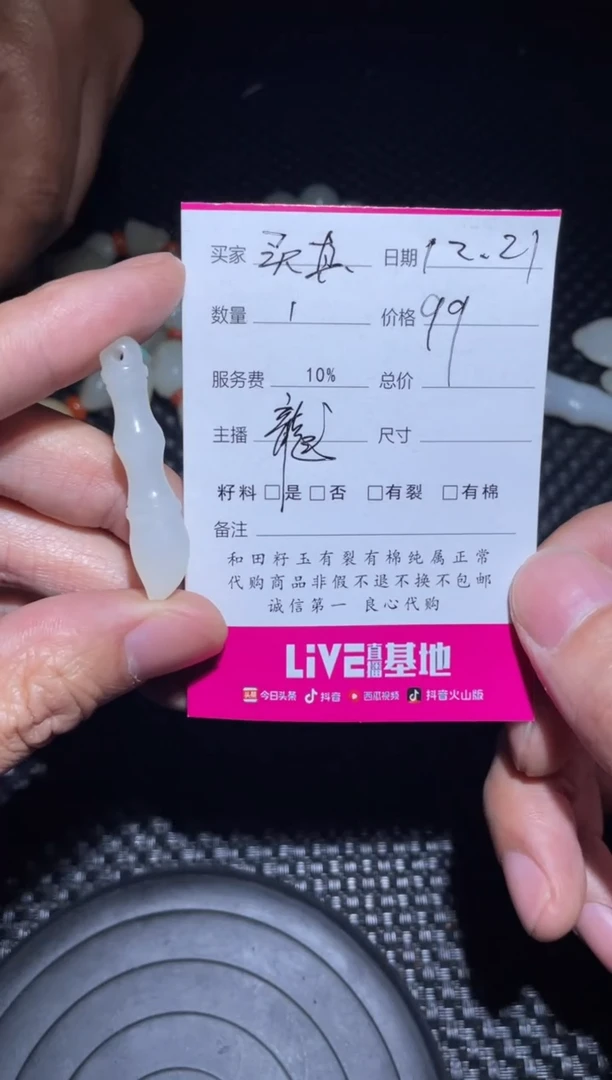 买家 买真 日期 12.21
数量 1 价格 99
服务费 10% 总价
主播 龍 尺寸
籽料 □是 □否 □有裂 □有棉
备注
和田籽玉有裂有棉纯属正常
代购商品非假不退不换不包邮
诚信第一 良心代购
LiVE直播基地
头条 今日头条 抖音 西瓜视频 抖音火山版